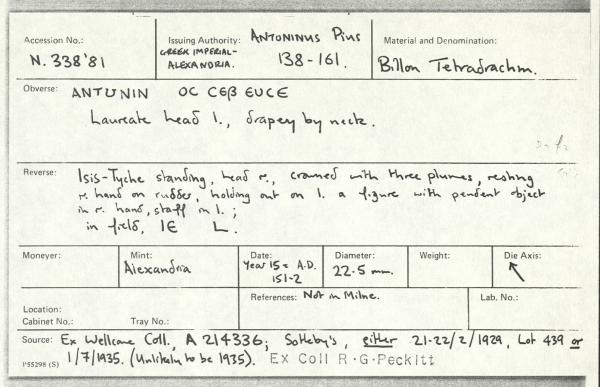 Accession No.:
N. 338'81
Issuing Authority: ANTONINUS PIUS
GREEK IMPERIAL-
ALEXANDRIA.
138-161.
Material and Denomination:
Billon Tetradrachm.
Obverse: ANTUNIN OC CEβ EUCE
Laureate head l., drapery by neck.
Reverse: Isis-Tyche standing, head r., crowned with three plumes, resting
r. hand on rudder, holding out on l. a figure with pendent object
in r. hand, staff in l.;
in field, IE L.
Moneyer:
Mint:
Alexandria
Date:
Year 15 = A.D.
151-2
Diameter:
22.5 mm.
Weight:
Die Axis:
↖
Location:
Cabinet No.: Tray No.:
References: Not in Milne.
Lab. No.:
Source: Ex Wellcome Coll., A 214336; Sotheby's, either 21-22/2/1929, Lot 439 or
1/7/1935. (Unlikely to be 1935). Ex Coll R.G.Peckitt
P55298 (S)